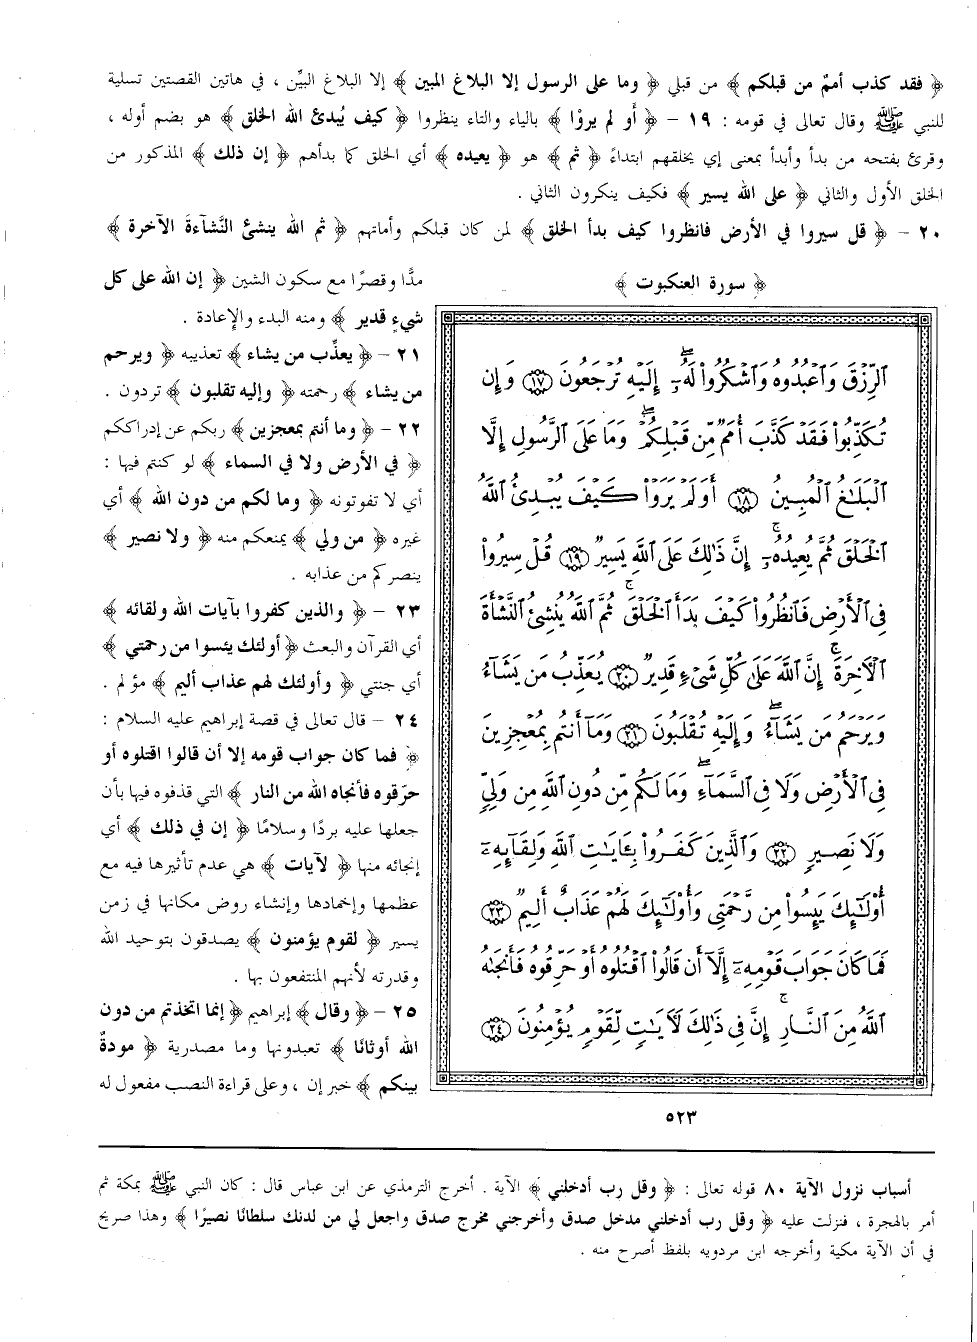 ﴿ فقد كذب أممٌ من قبلكم ﴾ من قبلي ﴿ وما على الرسول إلا البلاغ المبين ﴾ إلا البلاغ البيِّن ، في هاتين القصتين تسلية
للنبي ﷺ وقال تعالى في قومه : ١٩ – ﴿ أَو لم يروْا ﴾ بالياء والتاء ينظروا ﴿ كيف يُبدئ الله الخلق ﴾ هو بضم أوله ،
وقرئ بفتحه من بدأ وأبدأ بمعنى إي يخلقهم ابتداءً ﴿ ثم ﴾ هو ﴿ يعيده ﴾ أي الخلق كما بدأهم ﴿ إن ذلك ﴾ المذكور من
الخلق الأول والثاني ﴿ على الله يسير ﴾ فكيف ينكرون الثاني .
٢٠ – ﴿ قل سيروا في الأرض فانظروا كيف بدأ الخلق ﴾ لمن كان قبلكم وأماتهم ﴿ ثم الله ينشئ النَّشآءةَ الآخرة ﴾
﴿ سورة العنكبوت ﴾
ٱلرِّزْقَ وَٱعْبُدُوهُ وَٱشْكُرُوا۟ لَهُۥٓ ۖ إِلَيْهِ تُرْجَعُونَ ١٧ وَإِن
تُكَذِّبُوا۟ فَقَدْ كَذَّبَ أُمَمٌ مِّن قَبْلِكُمْ ۖ وَمَا عَلَى ٱلرَّسُولِ إِلَّا
ٱلْبَلَٰغُ ٱلْمُبِينُ ١٨ أَوَلَمْ يَرَوْا۟ كَيْفَ يُبْدِئُ ٱللَّهُ
ٱلْخَلْقَ ثُمَّ يُعِيدُهُۥٓ ۚ إِنَّ ذَٰلِكَ عَلَى ٱللَّهِ يَسِيرٌ ١٩ قُلْ سِيرُوا۟
فِى ٱلْأَرْضِ فَٱنظُرُوا۟ كَيْفَ بَدَأَ ٱلْخَلْقَ ۚ ثُمَّ ٱللَّهُ يُنشِئُ ٱلنَّشْأَةَ
ٱلْءَاخِرَةَ ۚ إِنَّ ٱللَّهَ عَلَىٰ كُلِّ شَىْءٍ قَدِيرٌ ٢٠ يُعَذِّبُ مَن يَشَآءُ
وَيَرْحَمُ مَن يَشَآءُ ۖ وَإِلَيْهِ تُقْلَبُونَ ٢١ وَمَآ أَنتُم بِمُعْجِزِينَ
فِى ٱلْأَرْضِ وَلَا فِى ٱلسَّمَآءِ ۖ وَمَا لَكُم مِّن دُونِ ٱللَّهِ مِن وَلِىٍّ
وَلَا نَصِيرٍ ٢٢ وَٱلَّذِينَ كَفَرُوا۟ بِـَٔايَٰتِ ٱللَّهِ وَلِقَآئِهِۦٓ
أُو۟لَٰٓئِكَ يَئِسُوا۟ مِن رَّحْمَتِى وَأُو۟لَٰٓئِكَ لَهُمْ عَذَابٌ أَلِيمٌ ٢٣
فَمَا كَانَ جَوَابَ قَوْمِهِۦٓ إِلَّآ أَن قَالُوا۟ ٱقْتُلُوهُ أَوْ حَرِّقُوهُ فَأَنجَىٰهُ
ٱللَّهُ مِنَ ٱلنَّارِ ۚ إِنَّ فِى ذَٰلِكَ لَءَايَٰتٍ لِّقَوْمٍ يُؤْمِنُونَ ٢٤
٥٢٣
مدًّا وقصرًا مع سكون الشين ﴿ إن الله على كل
شيءٍ قدير ﴾ ومنه البدء والإعادة .
٢١ – ﴿ يعذِّب من يشاء ﴾ تعذيبه ﴿ ويرحم
من يشاء ﴾ رحمته ﴿ وإليه تقلبون ﴾ تردون .
٢٢ – ﴿ وما أنتم بمعجزين ﴾ ربكم عن إدراككم
﴿ في الأرض ولا في السماء ﴾ لو كنتم فيها :
أي لا تفوتونه ﴿ وما لكم من دون الله ﴾ أي
غيره ﴿ من ولي ﴾ يمنعكم منه ﴿ ولا نصير ﴾
ينصركم من عذابه .
٢٣ – ﴿ والذين كفروا بآيات الله ولقائه ﴾
أي القرآن والبعث ﴿ أولئك يئسوا من رحمتي ﴾
أي جنتي ﴿ وأولئك لهم عذاب أليم ﴾ مؤلم .
٢٤ – قال تعالى في قصة إبراهيم عليه السلام :
﴿ فما كان جواب قومه إلا أن قالوا اقتلوه أو
حرّقوه فأنجاه الله من النار ﴾ التي قذفوه فيها بأن
جعلها عليه بردًا وسلامًا ﴿ إن في ذلك ﴾ أي
إنجائه منها ﴿ لآيات ﴾ هي عدم تأثيرها فيه مع
عظمها وإخمادها وإنشاء روض مكانها في زمن
يسير ﴿ لقوم يؤمنون ﴾ يصدقون بتوحيد الله
وقدرته لأنهم المنتفعون بها .
٢٥ – ﴿ وقال ﴾ إبراهيم ﴿ إنما اتخذتم من دون
الله أوثانًا ﴾ تعبدونها وما مصدرية ﴿ مودةُ
بينكم ﴾ خبر إن ، وعلى قراءة النصب مفعول له
أسباب نزول الآية ٨٠ قوله تعالى : ﴿ وقل رب أدخلني ﴾ الآية . أخرج الترمذي عن ابن عباس قال : كان النبي ﷺ بمكة ثم
أمر بالهجرة ، فنزلت عليه ﴿ وقل رب أدخلني مدخل صدق وأخرجني مخرج صدق واجعل لي من لدنك سلطانًا نصيرًا ﴾ وهذا صريح
في أن الآية مكية وأخرجه ابن مردويه بلفظ أصرح منه .